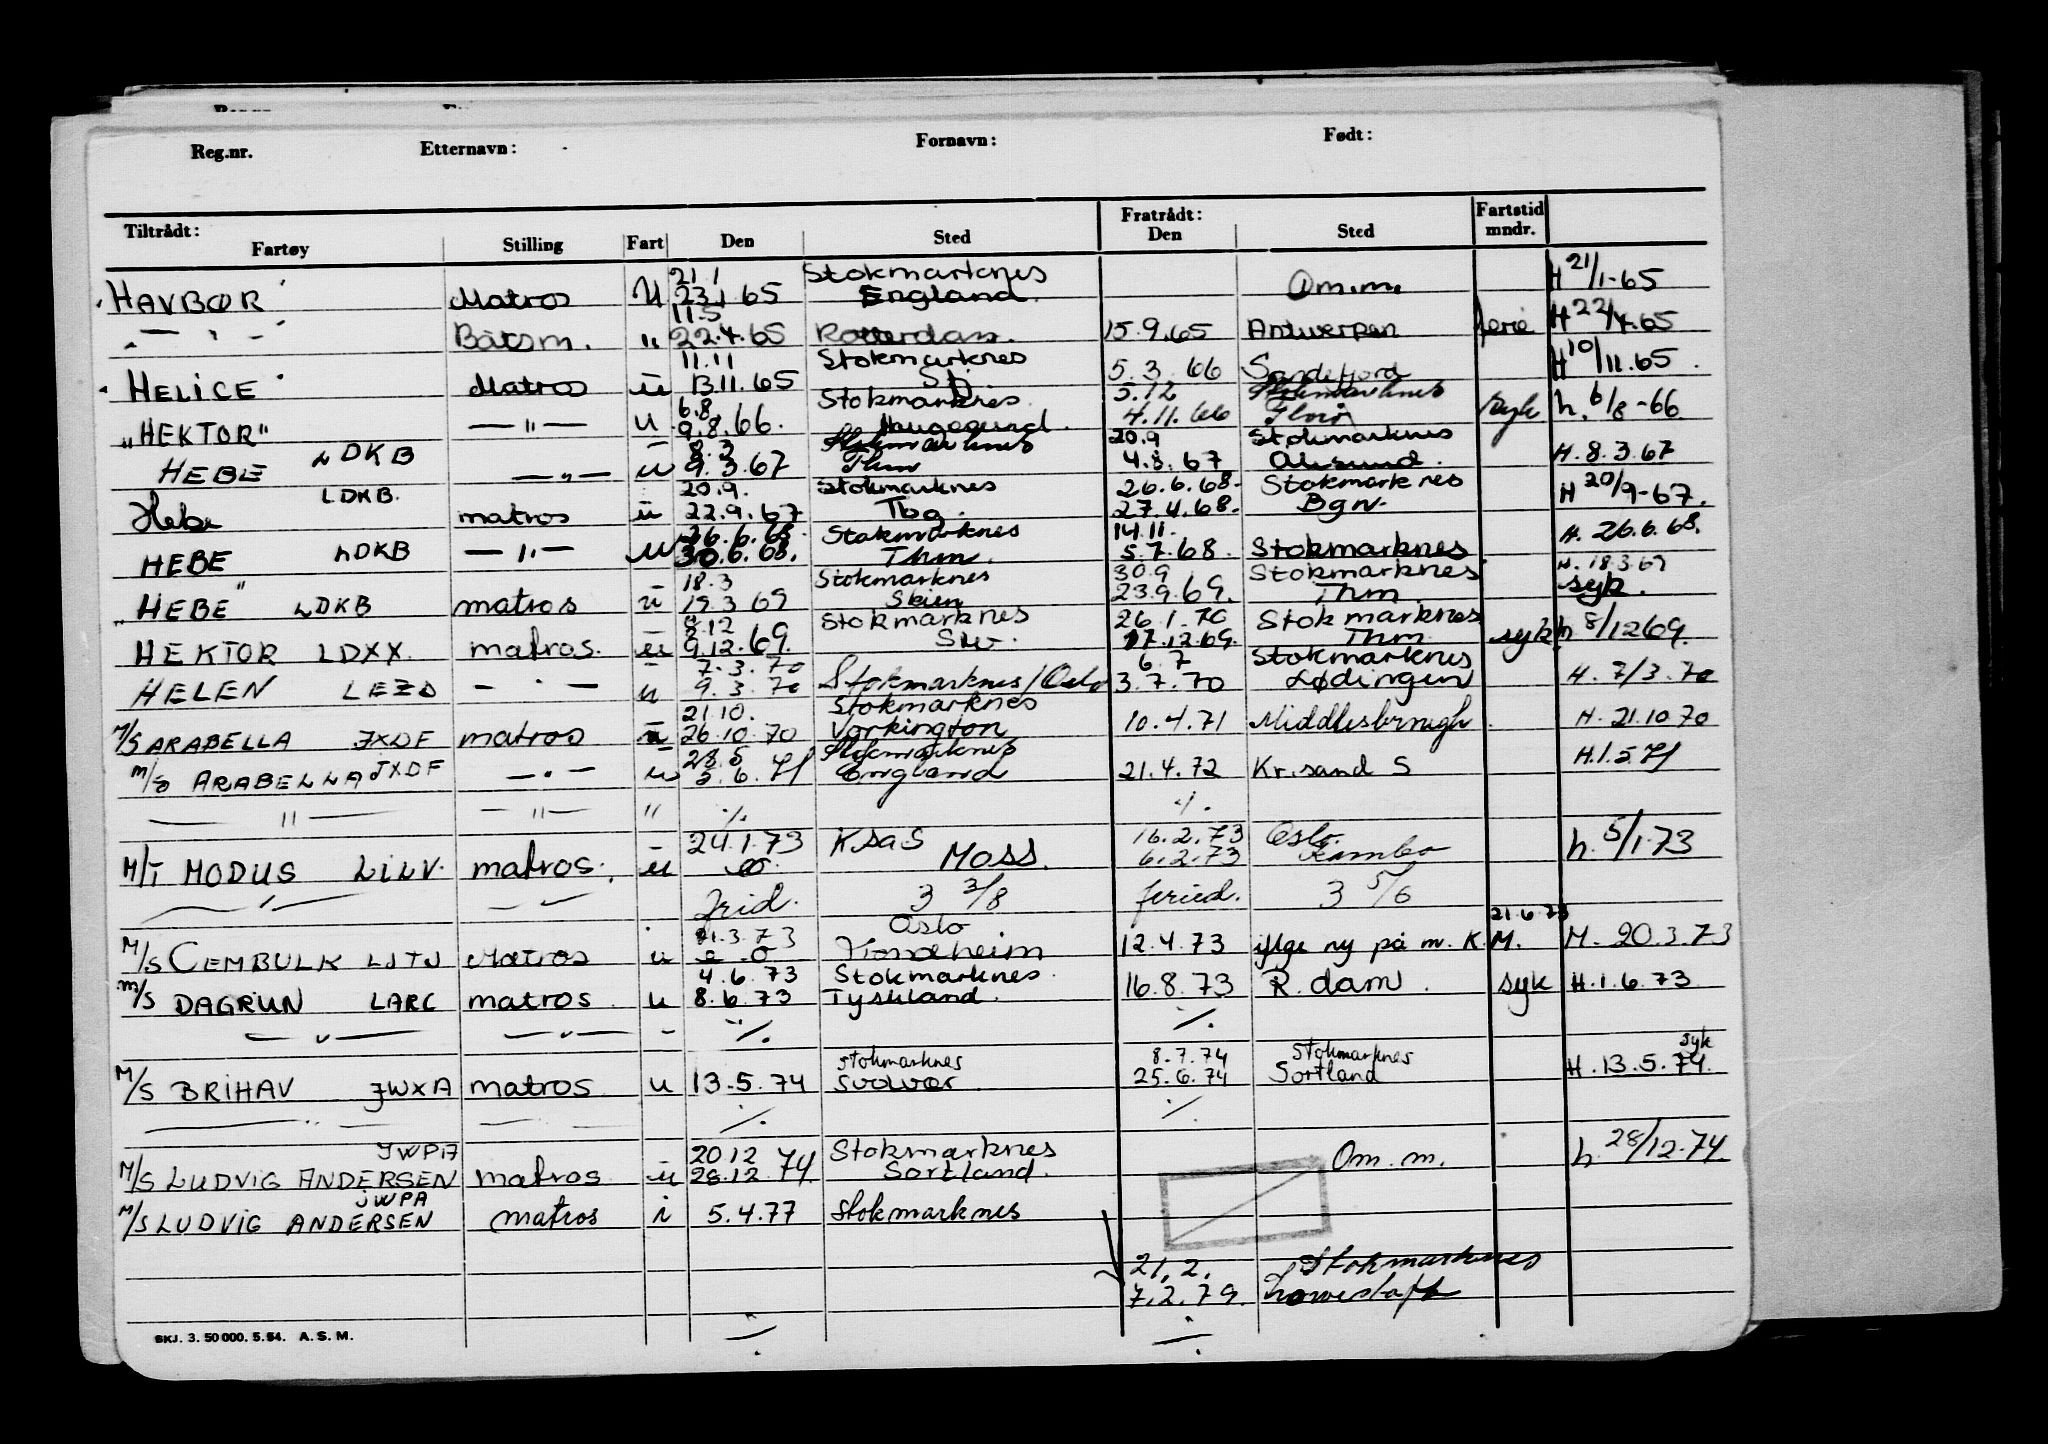 Reg.nr. Etternavn: Fornavn: Født:
Tiltrådt: Fratrådt: Fartstid
Fartøy Stilling Fart Den Sted Den Sted mndr.
21.1 Stokmarknes
HAVBØR Matros U 23.1.65 England Om.m. H 21/1-65
11.5
— " — Båtsm. " 22.4.65 Rotterdam. 15.9.65 Antwerpen ferie H 22/4.65
11.11 Stokmarknes
HELICE Matros u 13.11.65 Sfj 5.3.66 Sandefjord H 10/11.65
6.8. Stokmarknes 5.12 Stokmarknes
"HEKTOR" — " — u 9.8.66. Haugesund. 4.11.66 Florø Syk h. 6/8-66
8.3 Stokmarknes 20.9 Stokmarknes
HEBE LDKB — " — u 9.3.67 Thm 4.8.67 Ålesund. H.8.3.67
20.9. Stokmarknes 26.6.68. Stokmarknes
Hebe LDKB. matros u 22.9.67 Tbg. 27.4.68. Bgn. H 20/9-67.
26.6.68. Stokmarknes 14.11.
HEBE LDKB — " — u 30.6.68. Thm. 5.7.68 Stokmarknes H. 26.6.68.
18.3 Stokmarknes 30.9 Stokmarknes H. 18.3.69
"HEBE" LDKB matros u 19.3 69 Skien 23.9.69. Thm. syk.
8.12 Stokmarknes 26.1.70 Stokmarknes
HEKTOR LDXX. matros. u 9.12.69. 17.12.69. Thm. syk h 8/12 69.
7.3.70 6.7 Stokmarknes
HELEN LEZD — " — u 9.3.70 Stokmarknes/Oslo 3.7.70 Lødingen H. 7/3.70
21.10. Stokmarknes
M/S ARABELLA JXDF matros u 26.10.70 Vorkington 10.4.71 Middlesbrough. H. 21.10 70
28.5 Stokmarknes
m/s ARABELLA JXDF — " — u 5.6.71 England 21.4.72 Kr.sand S H.1.5.71
— " — — " — " ./. ./.
24.1.73 KsaS 16.2.73 Oslo
M/T MODUS LILV. matros. u Moss. 6.2.73 Kambo h. 5/1.73
— " — — " — frid. 3 3/8 feried. 3 5/6
21.3.73 Oslo 21.6.73
M/S CEMBULK LJTJ Matros u Trondheim 12.4.73 iflge ny på m. K. M. M. 20.3.73
4.6.73 Stokmarknes.
m/s DAGRUN LARC matros. u 8.6.73 Tyskland. 16.8.73 R.dam. syk H.1.6.73
— " — — " — - ./. ./.
Stokmarknes 8.7.74 Stokmarknes syk
M/S BRIHAV JWXA matros u 13.5.74 Svolvær 25.6.74 Sortland H.13.5.74.
./. ./.
JWPA 20.12 Stokmarknes
M/S LUDVIG ANDERSEN matros u 28.12.74. Sortland. Om.m. h. 28/12.74.
JWPA
M/S LUDVIG ANDERSEN matros i 5.4.77 Stokmarknes
21.2. Stokmarknes
7.2.79. Lowestoft
./. ./.
SKJ. 3. 50000. 5.54. A.S.M.